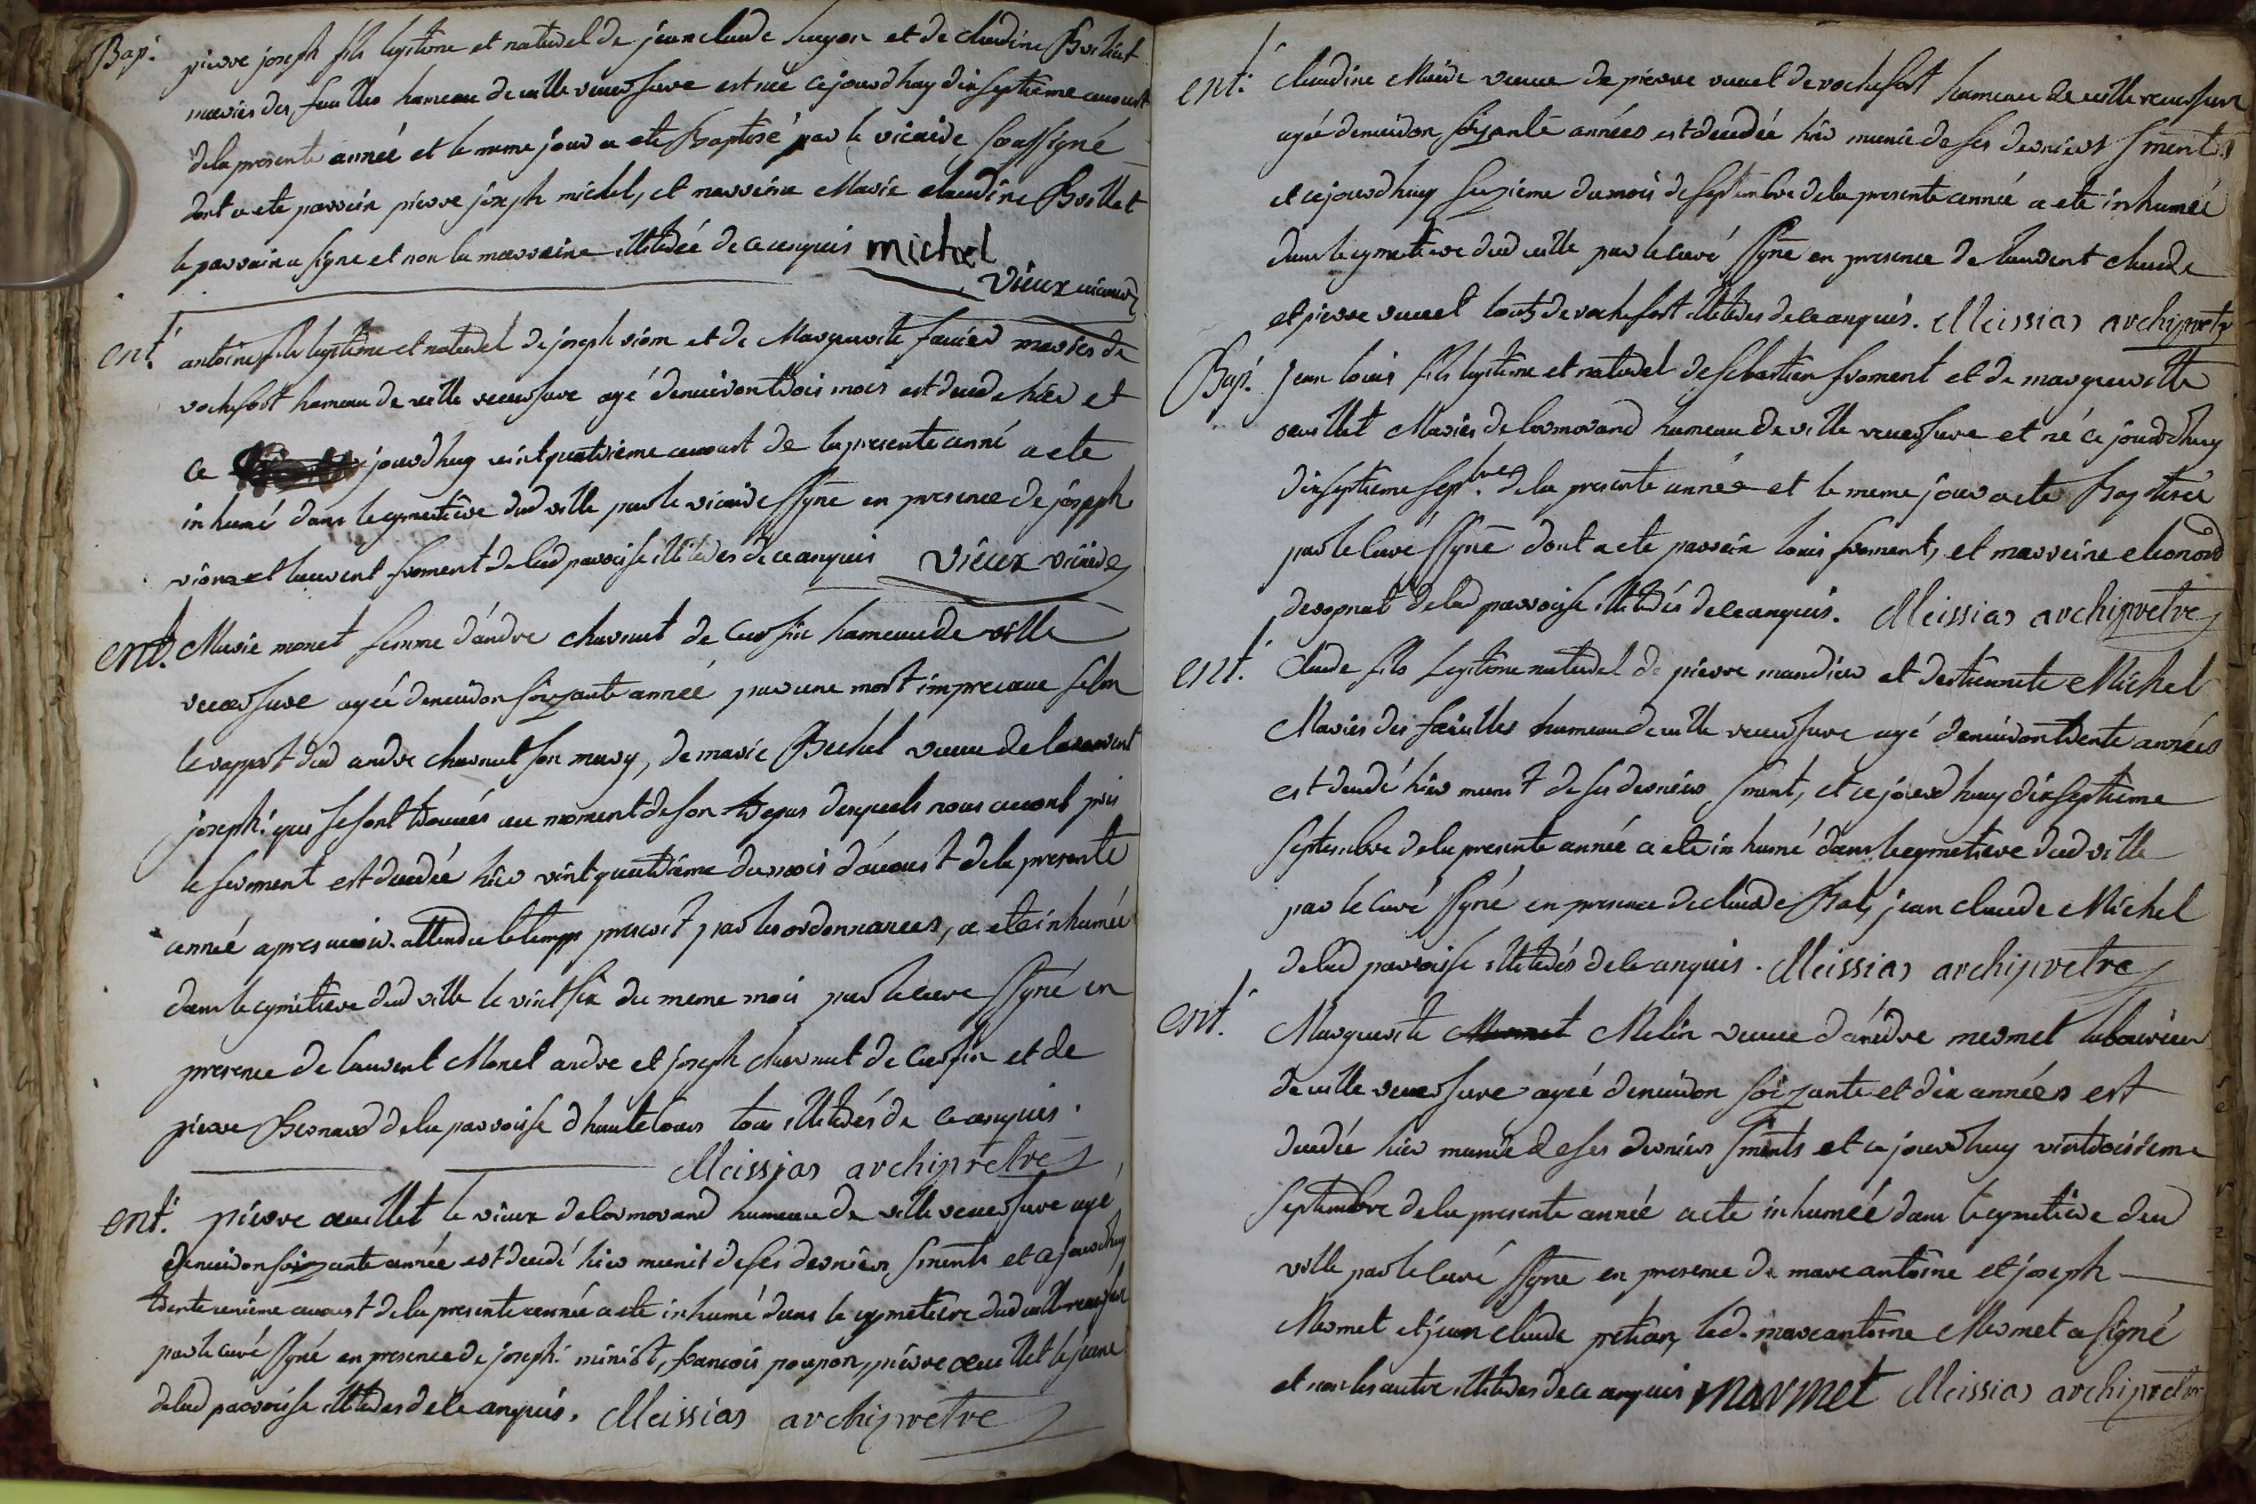 Bap.
pierre joseph fils legitime et naturel de jean claude et de claudine
mariés des feuilles hameau de ville reversure est née cejourdhuy dix septieme aoust
de la presente année et le meme jour a ete baptisé par le vicaire soussigné
dont a ete parrein pierre joseph michel, et marreine Marie claudine
le parrain a signe et non la marraine illiterée de ce enquis michel
vieux vicaire
ent.
antoine fils legitime et naturel de joseph vion et de Marguerite favier maries de
rochefort hameau de ville reversure agé denviron trois mois est decede hier et
ce jourdhuy vint quatrieme aoust de la presente anné a ete
inhumé dans le cymetiere dud ville par le vicaire ssyné en presence de joseph
vion et laurent froment de lad parroise illiteres de ce enquis vieux vicaire
ent. Marie monet femme d'andre charnut de cursin hameau de ville
reversure agée denviron soizante année par une mort selon
le rapport dud andre charnut son mary, de marie vueve de laurent
joseph. qui se sont trouvés au moment de son trepas desquels nous avont pris
le serment est decedée hier vint quatrieme du mois d'aoust de la presente
année apres avoir attendu le temps prescrit par les ordonnances, a ete inhumée
dans le cymetiere dud ville le vint six du meme mois par le cure ssyné en
presence de laurent Monet andre et joseph charnut de cursin et de
pierre Bernard de la parroise d'hautecour tous illiterés de ce enquis.
Meissias archipretre
ent. pierre œuillet le vieux de cormorand hameau de ville reversure agé
denviron soizante année est decedé hier munit de ses dernier sments et cejourdhuy
trente unieme aoust de la presente année a ete inhumé dans le cymetiere dud ville reversure
par le curé ssyné en presence de joseph. francois poupon, pierre œuillet le jeune
de lad parroise illiteres de ce enquis. Meissias archipretre
ent. claudine veuve de pierre vuuet de rochefort hameau de ville reversure
agée denviron soizante années est decedée hier munie de ses derniers sments
et cejourdhuy seizieme du mois de septembre de la presente année a ete inhumée
dans le cymetiere dud ville par le curé ssyné en presence de laurent claude
et pierre vuuet touts de rochefort illiteres de ce enquis. Meissias archipretre
Bap. jean louis fils legitime et naturel de sebastien froment et de marguerite
œuillet Mariés de cormorand hameau de ville reversure et né ce jourdhuy
dixseptieme sepbre de la presente année et le meme jour a ete baptisée
par le curé ssyné dont a ete parrein louis froment, et marreine elionord
de lad parroise illiterés de ce enquis. Meissias archipretre
ent. claude fils legitime naturel de pierre mandier et destiennete Michel
Mariés des feuilles hameau de ville reversure agé denviron trente années
est decedé hier munit de ses dernier sment, et cejourdhuy dixseptieme
septembre de la presente année a ete inhumé dans le cymetiere dud ville
par le curé ssyné en presence de claude jean claude Michel
de lad parroise illiterés de ce enquis. Meissias archipretre
ent. Marguerite Melin veuve d'andre mermet laboureur
de ville reversure agée denviron soizante et dix années est
decedée hier munie de ses dernier sments et cejourdhuy vint troisieme
septembre de la presente année a ete inhumée dans le cymetiere dud
ville par le curé ssyné en presence de marc antoine et joseph
Mermet et jean claude led. marc antoine Mermet a signé
et non les autre illiteres de ce enquis marmet Meissias archipretre